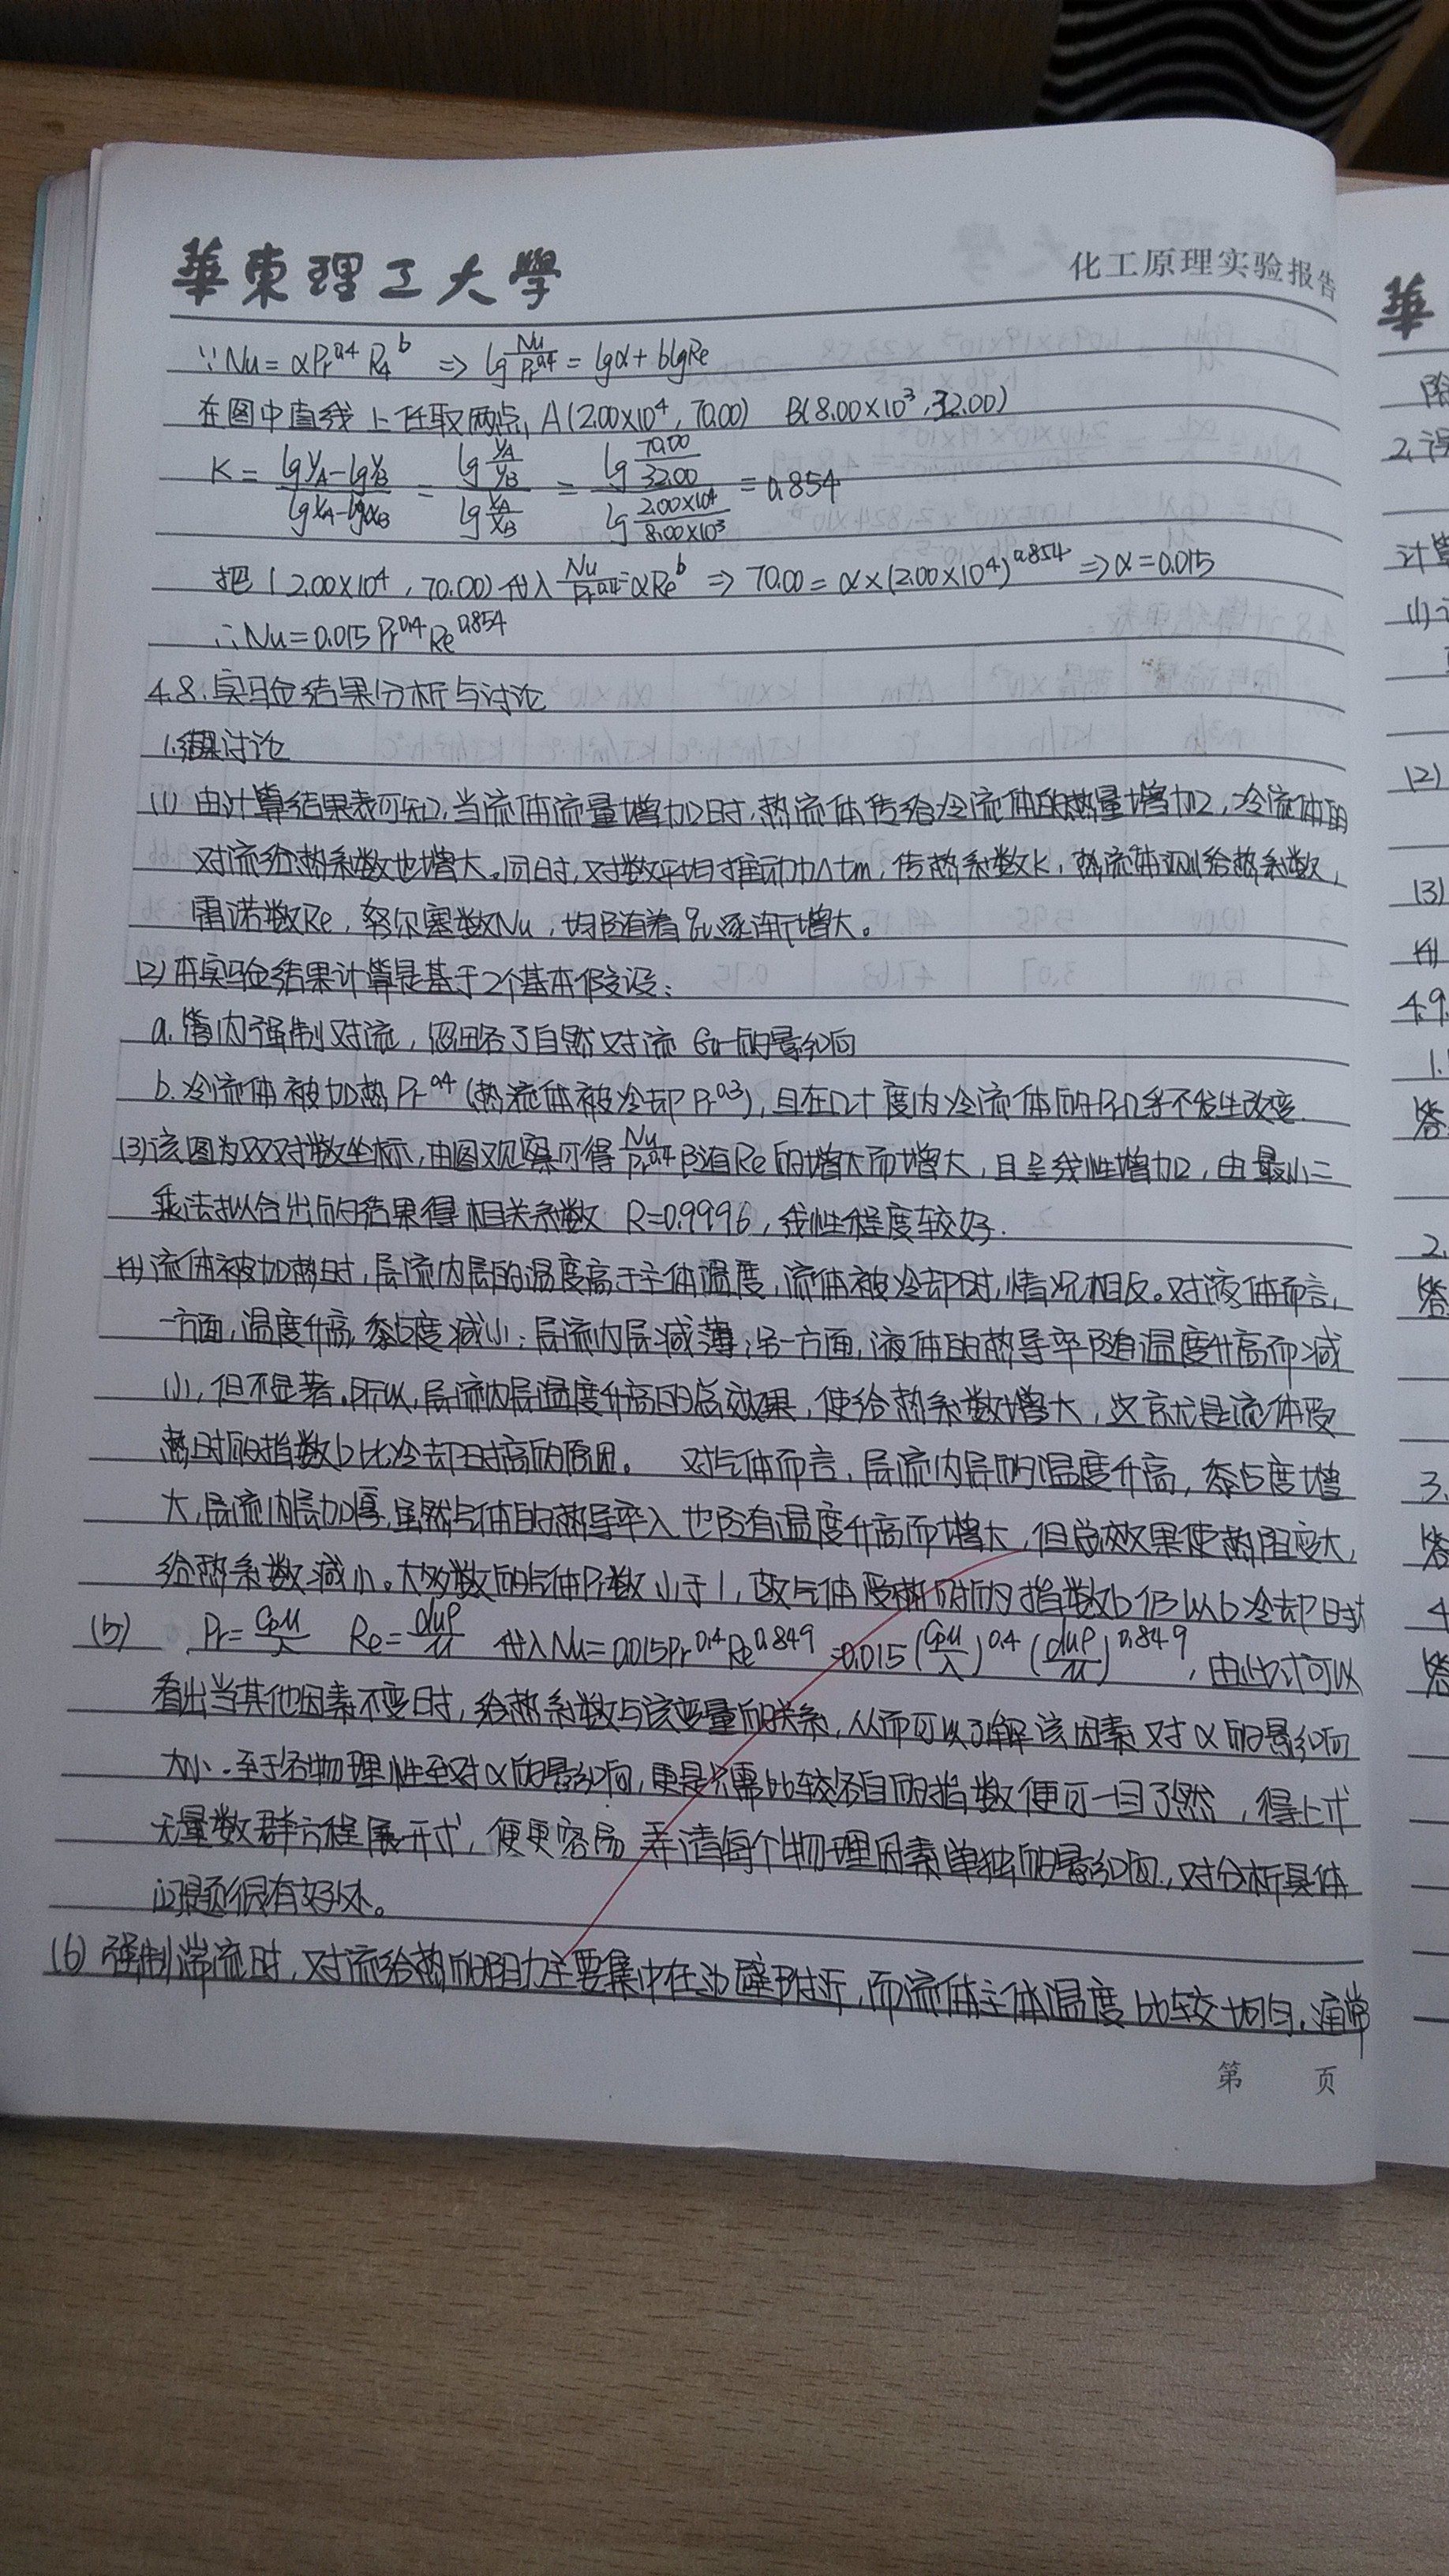 華東理工大學
化工原理实验报告
∵Nu=αPr^0.4 Re^b ⇒ lg Nu/Pr^0.4 = lgα+blgRe
在图中直线上任取两点, A(2.00×10^4, 70.00) B(8.00×10^3, 32.00)
K = (lgyA-lgyB)/(lgxA-lgxB) = (lg yA/yB)/(lg xA/xB) = (lg 70.00/32.00)/(lg 2.00×10^4/8.00×10^3) = 0.854
把(2.00×10^4, 70.00)代入 Nu/Pr^0.4=αRe^b ⇒ 70.00=α×(2.00×10^4)^0.854 ⇒α=0.015
∴Nu=0.015Pr^0.4Re^0.854
4.8.实验结果分析与讨论
1.结果讨论
(1) 由计算结果表可知,当流体流量增加时,热流体传给冷流体的热量增加,冷流体的
对流给热系数也增大。同时,对数平均推动力Δtm,传热系数K,热流体侧给热系数,
雷诺数Re,努尔塞数Nu,均随着qv逐渐增大。
(2)本实验结果计算是基于2个基本假设:
a.管内强制对流,忽略了自然对流Gr的影响
b.冷流体被加热Pr^0.4(热流体被冷却Pr^0.3),且在 度内冷流体的Pr几乎不发生改变.
(3)该图为双对数坐标,由图观察可得Nu/Pr^0.4随Re的增大而增大,且呈线性增加,由最小二
乘法拟合出的结果得相关系数 R=0.9996,线性程度较好.
(4)流体被加热时,层流内层的温度高于主体温度,流体被冷却时,情况相反。对液体而言,
一方面,温度升高,黏度减小;层流内层减薄;另一方面,液体的热导率随温度升高而减
小,但不显著。所以,层流内层温度升高的总效果,使给热系数增大,这就是流体受
热时的指数b比冷却时高的原因。 对气体而言,层流内层的温度升高,黏度增
大,层流内层加厚,虽然气体的热导率λ也随温度升高而增大,但总效果使热阻变大,
给热系数减小。大多数的气体Pr数小于1,故气体受热时的指数b仍 b冷却时
(5) Pr=cpμ/λ Re=duρ/μ 代入Nu=0.015Pr^0.4Re^0.849=0.015(cpμ/λ)^0.4(duρ/μ)^0.849,由此式可以
看出当其他因素不变时,给热系数与该变量的关系,从而可以了解该因素对α的影响
大小.至于各物理性至对α的影响,更是只需比较各自的指数便可一目了然,得上式
无量数群方程展开式,便更容易弄清每个物理因素单独的影响.,对分析具体
问题很有好处。
(6)强制湍流时,对流给热的阻力主要集中在 壁附近,而流体主体温度比较均匀.通常
第 页
華
2.
计算
(1)
(2)
(3)
(4)
4.9.
1.
答
2.
答
3.
答
4
答